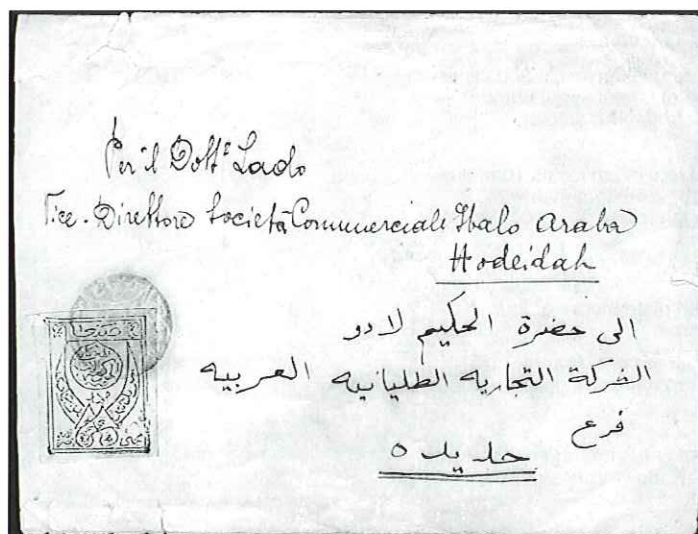 Per il Dott.r Lado
Vice-Direttore Società Commerciale Italo Araba
Hodeidah
الى حضرة الحكيم لادو
الشركة التجاريه الطليانيه العربيه
فرع
حديده